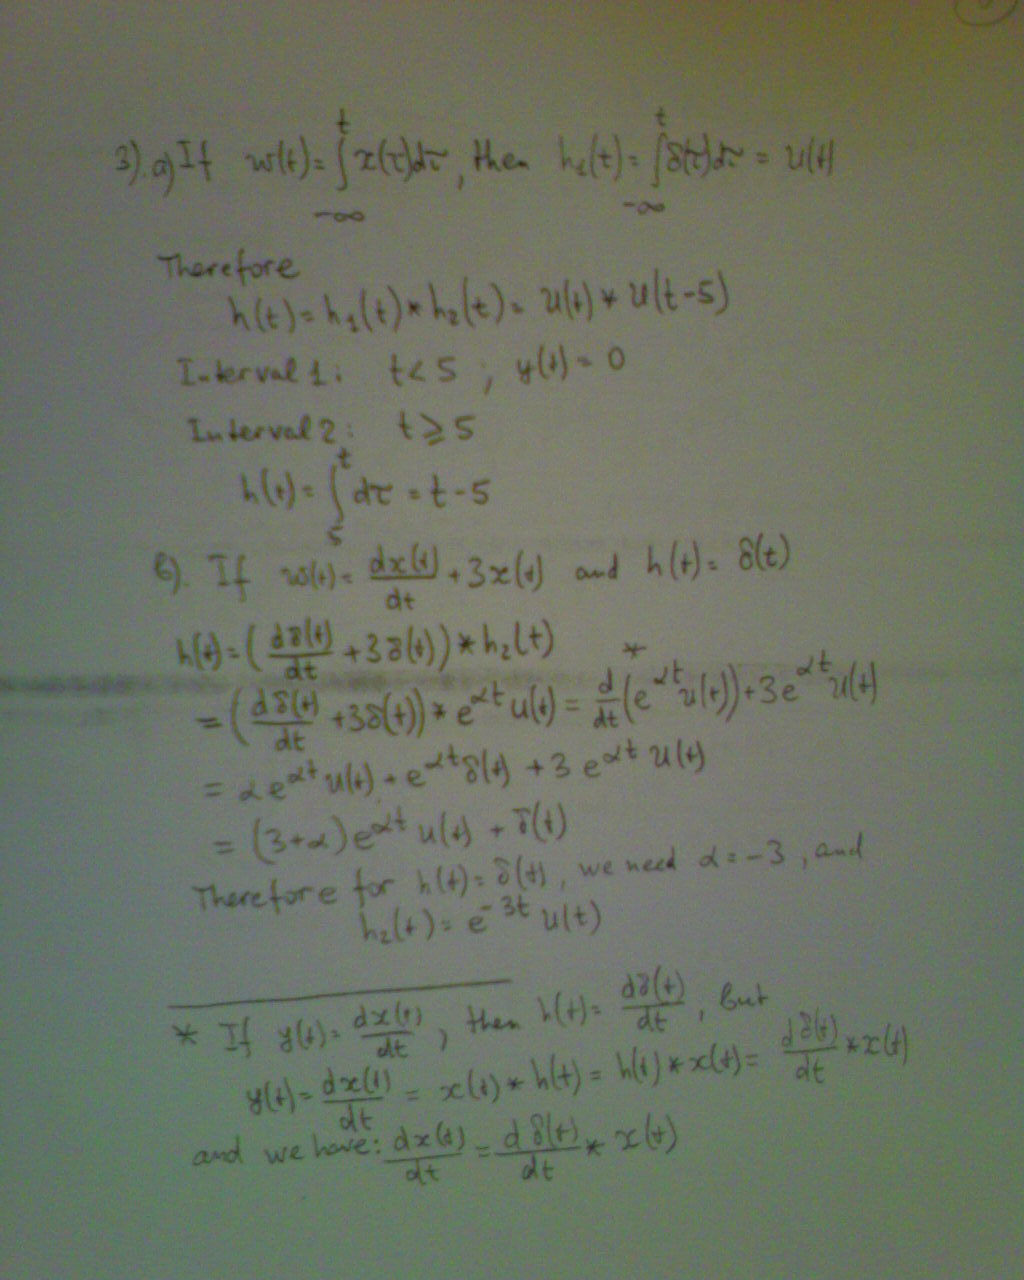 3). a) If w(t) = ∫_{-∞}^{t} x(τ)dτ, then h₁(t) = ∫_{-∞}^{t} δ(τ)dτ = u(t)
Therefore
h(t) = h₁(t) * h₂(t) = u(t) * u(t-5)
Interval 1: t < 5 ; y(t) = 0
Interval 2: t ≥ 5
h(t) = ∫_{5}^{t} dτ = t - 5
b). If w(t) = dx(t)/dt + 3x(t) and h(t) = δ(t)
h(t) = (dδ(t)/dt + 3δ(t)) * h₂(t)
= (dδ(t)/dt + 3δ(t)) * e^{αt} u(t) =* d/dt (e^{αt} u(t)) + 3e^{αt} u(t)
= α e^{αt} u(t) + e^{αt} δ(t) + 3 e^{αt} u(t)
= (3+α) e^{αt} u(t) + δ(t)
Therefore for h(t) = δ(t), we need α = -3, and
h₂(t) = e^{-3t} u(t)
* If y(t) = dx(t)/dt, then h(t) = dδ(t)/dt, but
y(t) = dx(t)/dt = x(t) * h(t) = h(t) * x(t) = dδ(t)/dt * x(t)
and we have: dx(t)/dt = dδ(t)/dt * x(t)